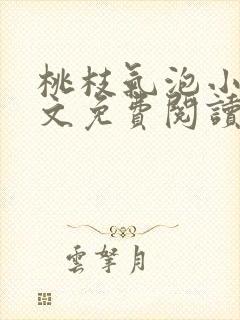 桃枝氣泡小
文免費閱讀
雲拏月